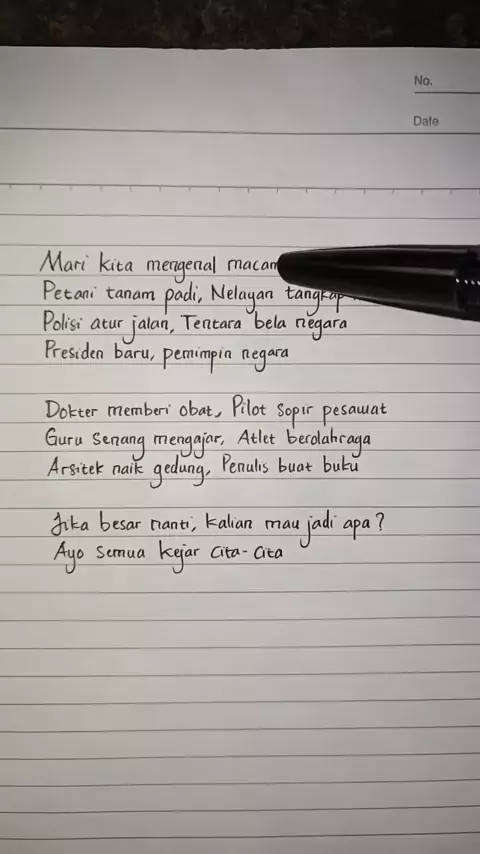 No.
Date
Mari kita mengenal macam
Petani tanam padi, Nelayan tangkap
Polisi atur jalan, Tentara bela negara
Presiden baru, pemimpin negara
Dokter memberi obat, Pilot sopir pesawat
Guru senang mengajar, Atlet berolahraga
Arsitek naik gedung, Penulis buat buku
Jika besar nanti, kalian mau jadi apa?
Ayo semua kejar cita-cita